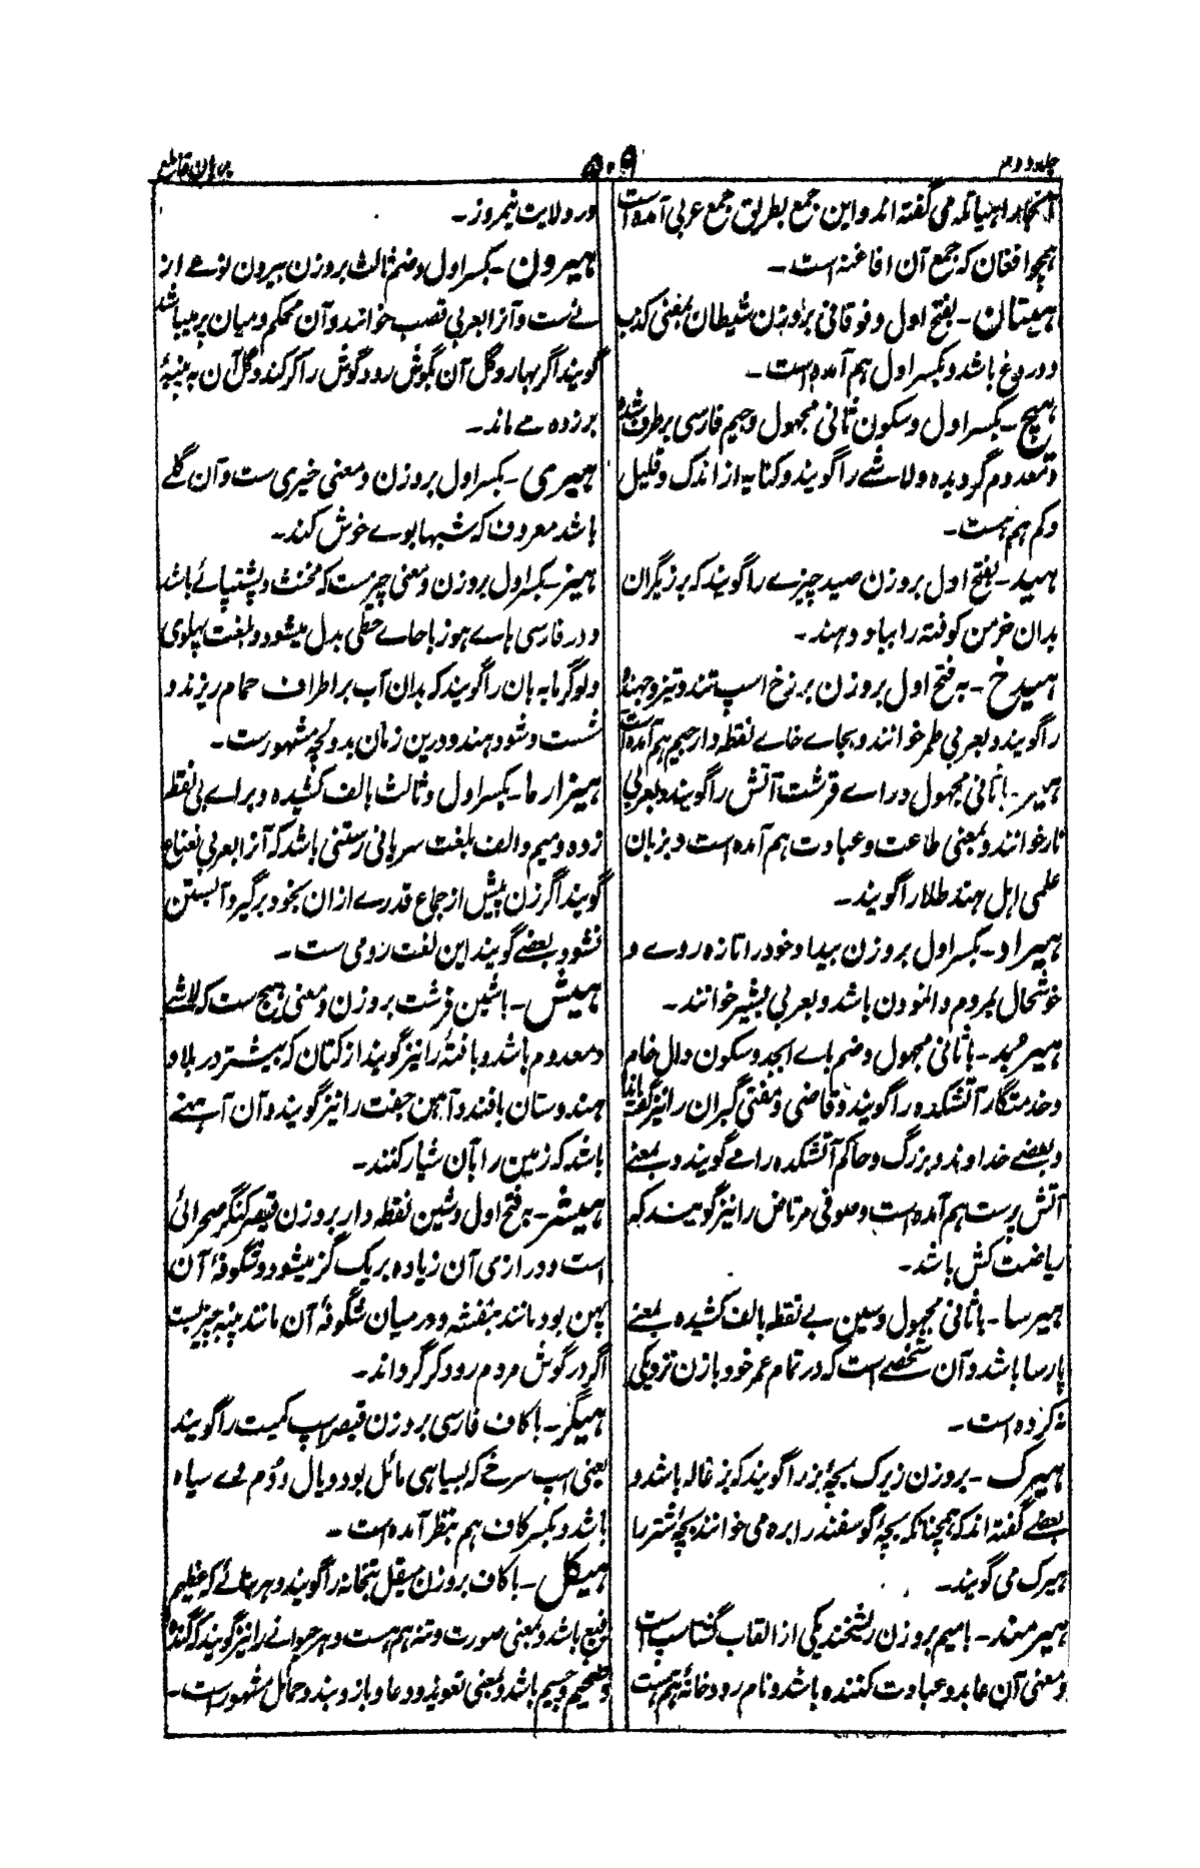 جلد دوم
۵۰۹
برہان قاطع
آنجا را ہیاتلہ می گفتہ اند و این جمع بطریق جمع عربی آمدہ است
ہمچو افغان کہ جمع آن افاغنہ است۔
ہیتان۔ بفتح اول و فوقانی بر وزن شیطان بمعنی کذب
و دروغ باشد و بکسر اول ہم آمدہ است۔
ہیچ۔ بکسر اول و سکون ثانی مجہول و جیم فارسی برطرف شدہ
و معدوم گردیدہ و لاشے را گویند و کنایہ از اندک و قلیل
و کم ہم ہست۔
ہید۔ بفتح اول بر وزن صید چیزے را گویند کہ برزیگران
بدان خرمن کوفتہ را بباد دہند۔
ہیدخ۔ بہ فتح اول بر وزن برزخ اسپ تند و تیز و جہندہ
را گویند و بعربی طمر خوانند و بجاے خاے نقطہ دار جیم ہم آمدہ است
ہیر۔ باثانی مجہول و راے قرشت آتش را گویند و بعربی
نار خوانند و بمعنی طاعت و عبادت ہم آمدہ است و بزبان
علمی اہل ہند طلا را گویند۔
ہیراد۔ بکسر اول بر وزن بیداد خود را تازہ روے و
خوشحال بمردم وانمودن باشد و بعربی بشیر خوانند۔
ہیربد۔ باثانی مجہول و ضم باے ابجد و سکون دال خادم
و خدمتگار آتشکدہ را گویند و قاضی و مفتی گبران را نیز گفتہ اند
و بعضے خداوند و بزرگ و حاکم آتشکدہ را مے گویند و بمعنے
آتش پرست ہم آمدہ است و صوفی مرتاض را نیز گویند کہ
ریاضت کش باشد۔
ہیرسا۔ باثانی مجہول و سین بے نقطہ بالف کشیدہ بمعنے
پارسا باشد و آن شخصے است کہ در تمام عمر خود با زن نزدیکی
نہ کردہ است۔
ہیرک۔ بر وزن زیرک بچۂ بز را گویند کہ بزغالہ باشد و
بعضے گفتہ اند کہ ہمچنانکہ بچۂ گوسفند را برہ می خوانند بچۂ شتر را
ہیرک می گویند۔
ہیرمند۔ بامیم بر وزن ریشخند یکی از القاب گشتاسپ است
و معنی آن عابد و عبادت کنندہ باشد و نام رودخانۂ ہم ہست
در ولایت نیمروز۔
ہیرون۔ بکسر اول و ضم ثالث بر وزن بیرون نوعے از
نے ست و آنرا بعربی قصب خوانند و آن محکم و میان پر میباشد
گویند اگر بہار و گل آن بگوش رود گوش را کر کند و گل آن بہ پنبۂ
برزدہ مے ماند۔
ہیری۔ بکسر اول بر وزن و معنی خیری ست و آن گلے
باشد معروف کہ شبہا بوے خوش کند۔
ہیز۔ بکسر اول بر وزن و معنی حیز ست کہ مخنث و پشتپائے باشد
و در فارسی ہاے ہوز باحاے حطی بدل میشود و بلغت پہلوی
دلو گرمابہ بان را گویند کہ بدان آب بر اطراف حمام ریزند و
شست و شو دہند و درین زمان بدولچہ مشہورست۔
ہیزارما۔ بکسر اول و ثالث بالف کشیدہ و براے بی نقطہ
زدہ و میم و الف بلغت سریانی رستنی باشد کہ آنرا بعربی نعناع
گویند اگر زن پیش از جماع قدرے ازان بخود برگیرد آبستن
نشود و بعضے گویند این لغت رومی ست۔
ہیش۔ باشین قرشت بر وزن و معنی ہیچ ست کہ لاشے
و معدوم باشد و بافتۂ را نیز گویند از کتان کہ بیشتر در بلاد
ہندوستان بافند و آہن جفت را نیز گویند و آن آہنے
باشد کہ زمین را بآن شیار کنند۔
ہیشر۔ بہ فتح اول و شین نقطہ دار بر وزن قیصر کنگر صحرائی
است و درازی آن زیادہ بر یک گز میشود و شگوفۂ آن
پہن بود مانند بنفشہ و در میان شگوفۂ آن مانند پنبہ چیزیست
اگر در گوش مردم رود کر گرداند۔
ہیگر۔ باکاف فارسی بر وزن قیصر اسپ کمیت را گویند
یعنی اسپ سرخے کہ بسیاہی مائل بود و یال و دُم وے سیاہ
باشد و بکسر کاف ہم بنظر آمدہ است۔
ہیکل۔ باکاف بر وزن صیقل بتخانہ را گویند و ہر بنائے کہ عظیم
رفیع باشد و بمعنی صورت و تنہ ہم ہست و ہر حیوانے را نیز گویند کہ گندہ
و ضخیم و جسیم باشد و بمعنی تعویذ و دعا و بازوبند و حمائل مشہورست۔